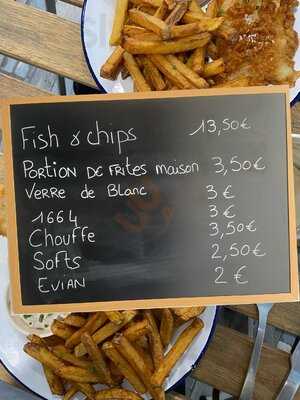 Fish & chips 13,50€
PORTION DE FRITES maison 3,50€
VERRE de BLANC 3€
1664 3€
Chouffe 3,50€
Softs 2,50€
EVIAN 2€